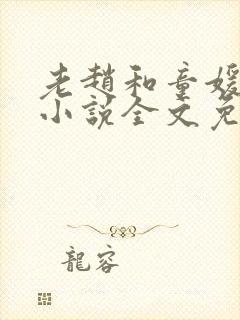 老趙和童媛
小說全文免
龍容